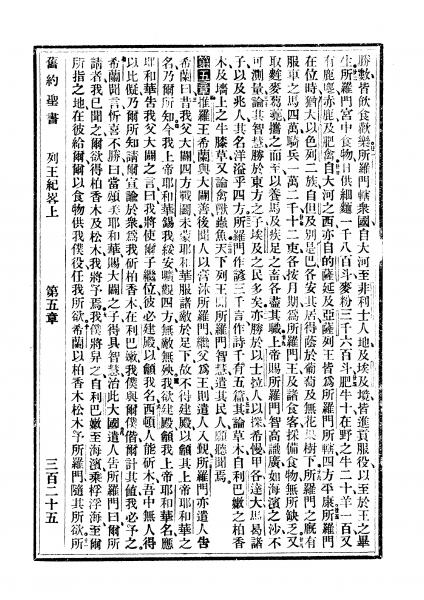 勝數皆飲食歡樂所羅門轄衆國自大河至非利士人地及埃及境皆進貢服役以至於王之畢
生所羅門宮中食物日供細麵一千八百斗麥粉三千六百斗肥牛十在野之牛二十羊一百又
有鹿麞赤鹿及肥禽自大河之西亦自的薩延及亞薩列王皆爲所羅門所轄四方平康所羅門
在位時猶大以色列二族自但及別是巴各安其居得蔭於葡萄及無花果樹下所羅門之廐有
服車之馬四萬騎兵一萬二千十二吏各按月期爲所羅門王及諸食客採備食物無所缺乏又
取麰麥芻藁攜之而至以養馬及疾足之畜各盡其職上帝賜所羅門智高識廣如海濱之沙不
可測量論其智慧勝於東方之子埃及之民多矣亦勝於以士拉人以探希慢甲各達大馬曷諸
子以及兆人其名洋溢乎四方所羅門作諺三千言作詩千有五篇其論草木自利巴嫩之柏香
木及墻上之牛膝草又論禽獸蟲魚天下列王聞所羅門智慧有遣其民人願聽聞焉
第五章推羅王希蘭與大闢善後聞人以膏沐所羅門繼父爲王則遣人入覲所羅門亦遣人告
希蘭曰昔我父大闢四方戰鬭未蒙耶和華服諸敵於足下故不得建殿以籲其上帝耶和華之
名乃爾所知今我上帝耶和華錫我綏安曠觀四方無敵無殃我欲建殿籲我上帝耶和華名應
耶和華告我父大闢之言曰我將使爾子繼位彼必建殿以籲我名西頓人能斫木吾中無人得
以比儗乃爾所知請爾宣諭於衆爲我斫柏香木在利巴嫩我僕與爾僕偕爾計其値我必予之
希蘭聞言忻喜不勝曰當頌美耶和華賜大闢之子得具智慧治此大國遣人告所羅門曰爾所
請者我已聞之爾欲得柏香木及松木我將予焉我僕將舁之自利巴嫩至海濱乘桴浮海至爾
所指之地在彼給爾爾以食物供我僕役任我所欲希蘭以柏香木松木予所羅門隨其所欲所
舊約聖書 列王紀畧上 第五章 三百二十五